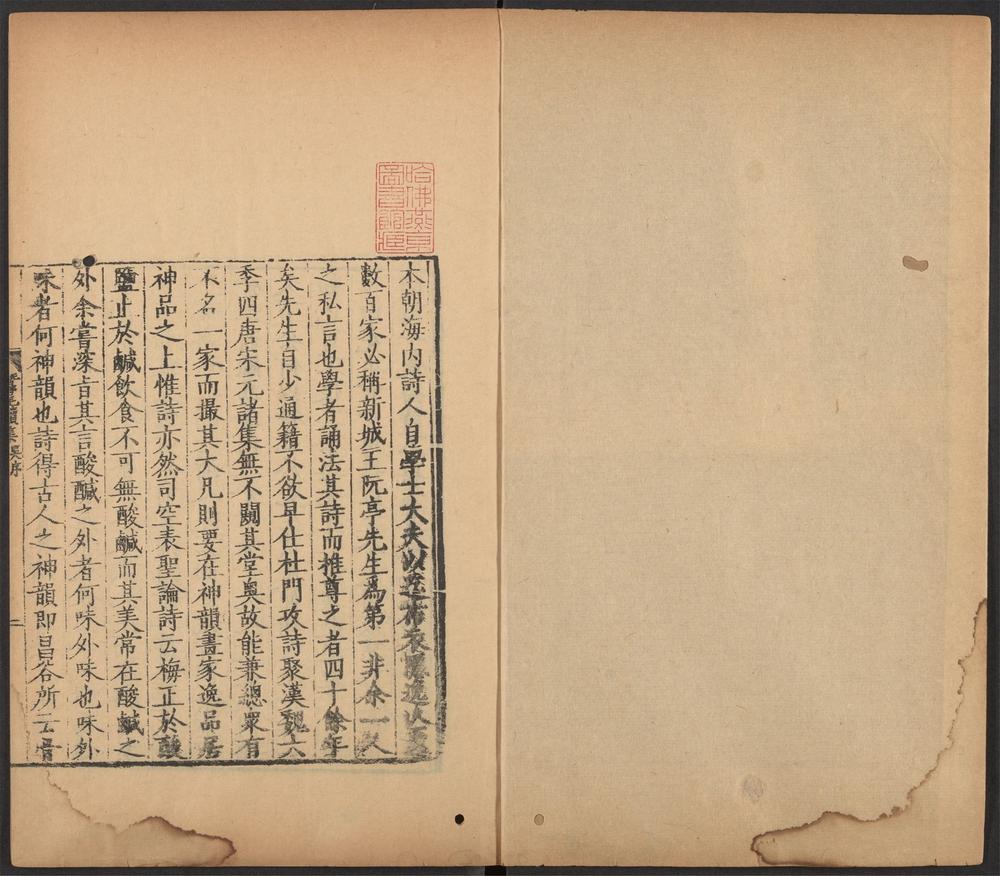 哈佛燕京
圖書館藏
本朝海內詩人自學士大夫以逮布衣隱逸
數百家必稱新城王阮亭先生爲第一非余一人
之私言也學者誦法其詩而推尊之者四十餘年
矣先生自少通籍不欲早仕杜門攻詩聚漢魏六
季四唐宋元諸集無不闚其堂奧故能兼總衆有
不名一家而撮其大凡則要在神韻畫家逸品居
神品之上惟詩亦然司空表聖論詩云梅正於酸
鹽止於鹹飲食不可無酸鹹而其美常在酸鹹之
外余嘗深旨其言酸鹹之外者何味外味也味外
味者何神韻也詩得古人之神韻即昌谷所云骨